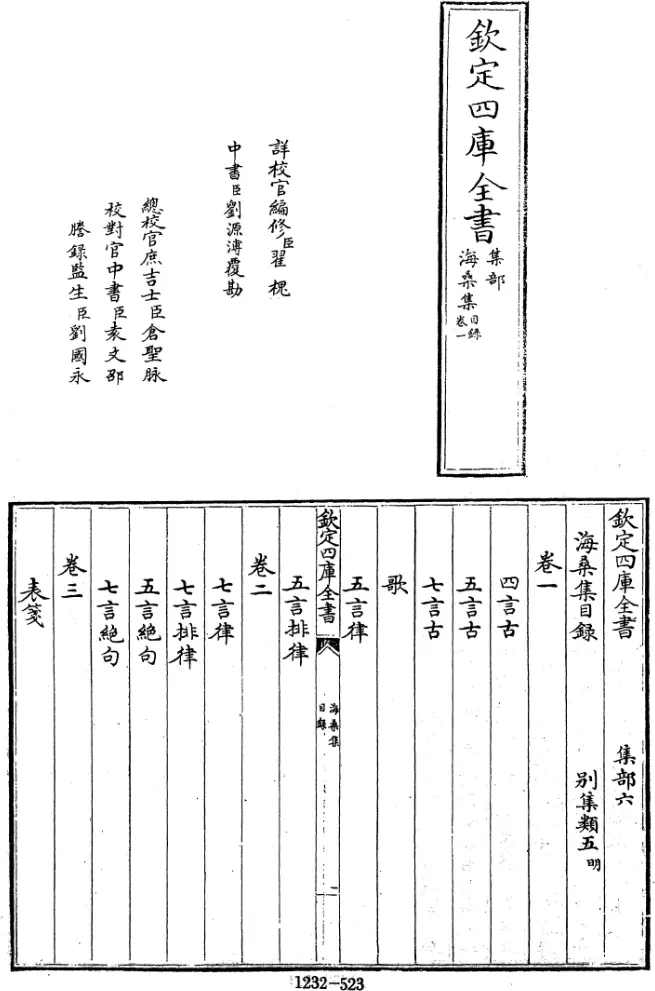 欽定四庫全書
集部
海桑集
目錄
卷一
詳校官編修臣翟槐
中書臣劉源溥覆勘
總校官庶吉士臣倉聖脉
校對官中書臣袁文邵
謄錄監生臣劉國永
欽定四庫全書 集部六
海桑集目錄 別集類五 明
卷一
四言古
五言古
七言古
歌
五言律
欽定四庫全書
海桑集
目錄
一
五言排律
卷二
七言律
七言排律
五言絶句
七言絶句
卷三
表箋
1232-523